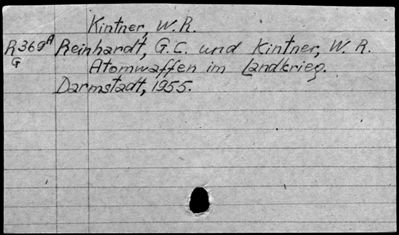 Kintner, W.R.
R369A Reinhardt, G.C. und Kintner, W.R.
G Atomwaffen im Landkrieg.
Darmstadt, 1955.